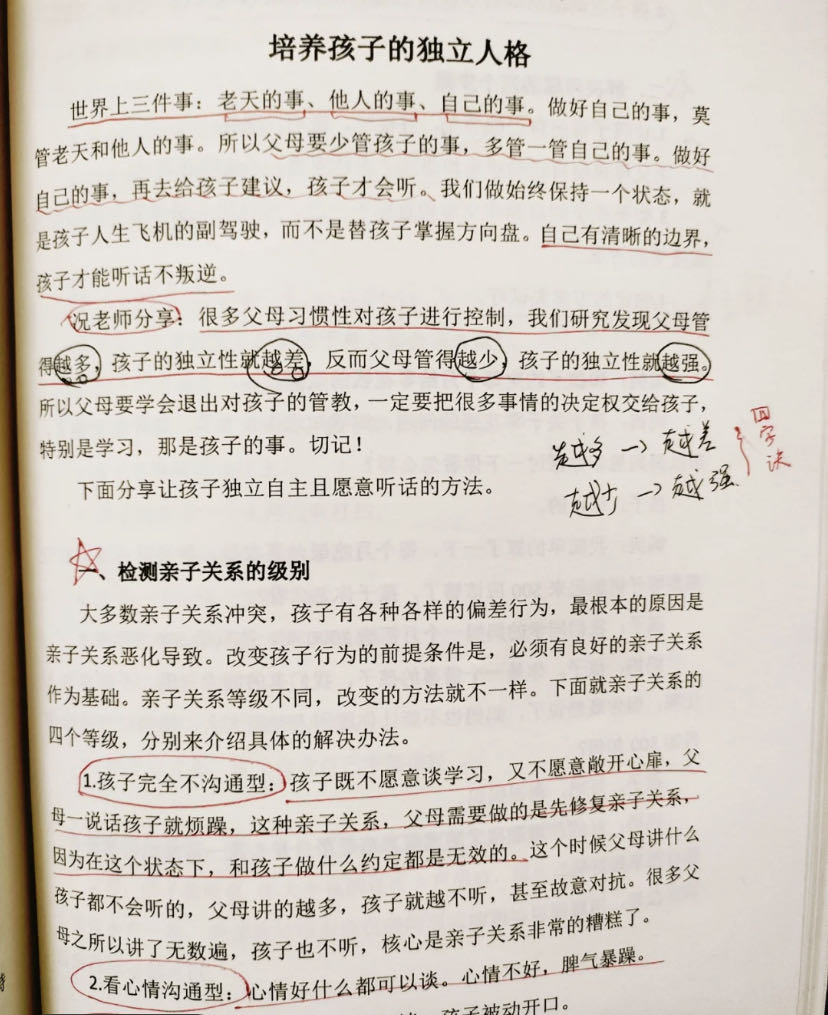 培养孩子的独立人格
世界上三件事：老天的事、他人的事、自己的事。做好自己的事，莫
管老天和他人的事。所以父母要少管孩子的事，多管一管自己的事。做好
自己的事，再去给孩子建议，孩子才会听。我们做始终保持一个状态，就
是孩子人生飞机的副驾驶，而不是替孩子掌握方向盘。自己有清晰的边界，
孩子才能听话不叛逆。
况老师分享：很多父母习惯性对孩子进行控制，我们研究发现父母管
得越多，孩子的独立性就越差，反而父母管得越少，孩子的独立性就越强。
所以父母要学会退出对孩子的管教，一定要把很多事情的决定权交给孩子，
特别是学习，那是孩子的事。切记！
越多→越差
越少→越强
四字诀
下面分享让孩子独立自主且愿意听话的方法。
一、检测亲子关系的级别
大多数亲子关系冲突，孩子有各种各样的偏差行为，最根本的原因是
亲子关系恶化导致。改变孩子行为的前提条件是，必须有良好的亲子关系
作为基础。亲子关系等级不同，改变的方法就不一样。下面就亲子关系的
四个等级，分别来介绍具体的解决办法。
1.孩子完全不沟通型：孩子既不愿意谈学习，又不愿意敞开心扉，父
母一说话孩子就烦躁，这种亲子关系，父母需要做的是先修复亲子关系，
因为在这个状态下，和孩子做什么约定都是无效的。这个时候父母讲什么
孩子都不会听的，父母讲的越多，孩子就越不听，甚至故意对抗。很多父
母之所以讲了无数遍，孩子也不听，核心是亲子关系非常的糟糕了。
2.看心情沟通型：心情好什么都可以谈。心情不好，脾气暴躁。
孩子被动开口。